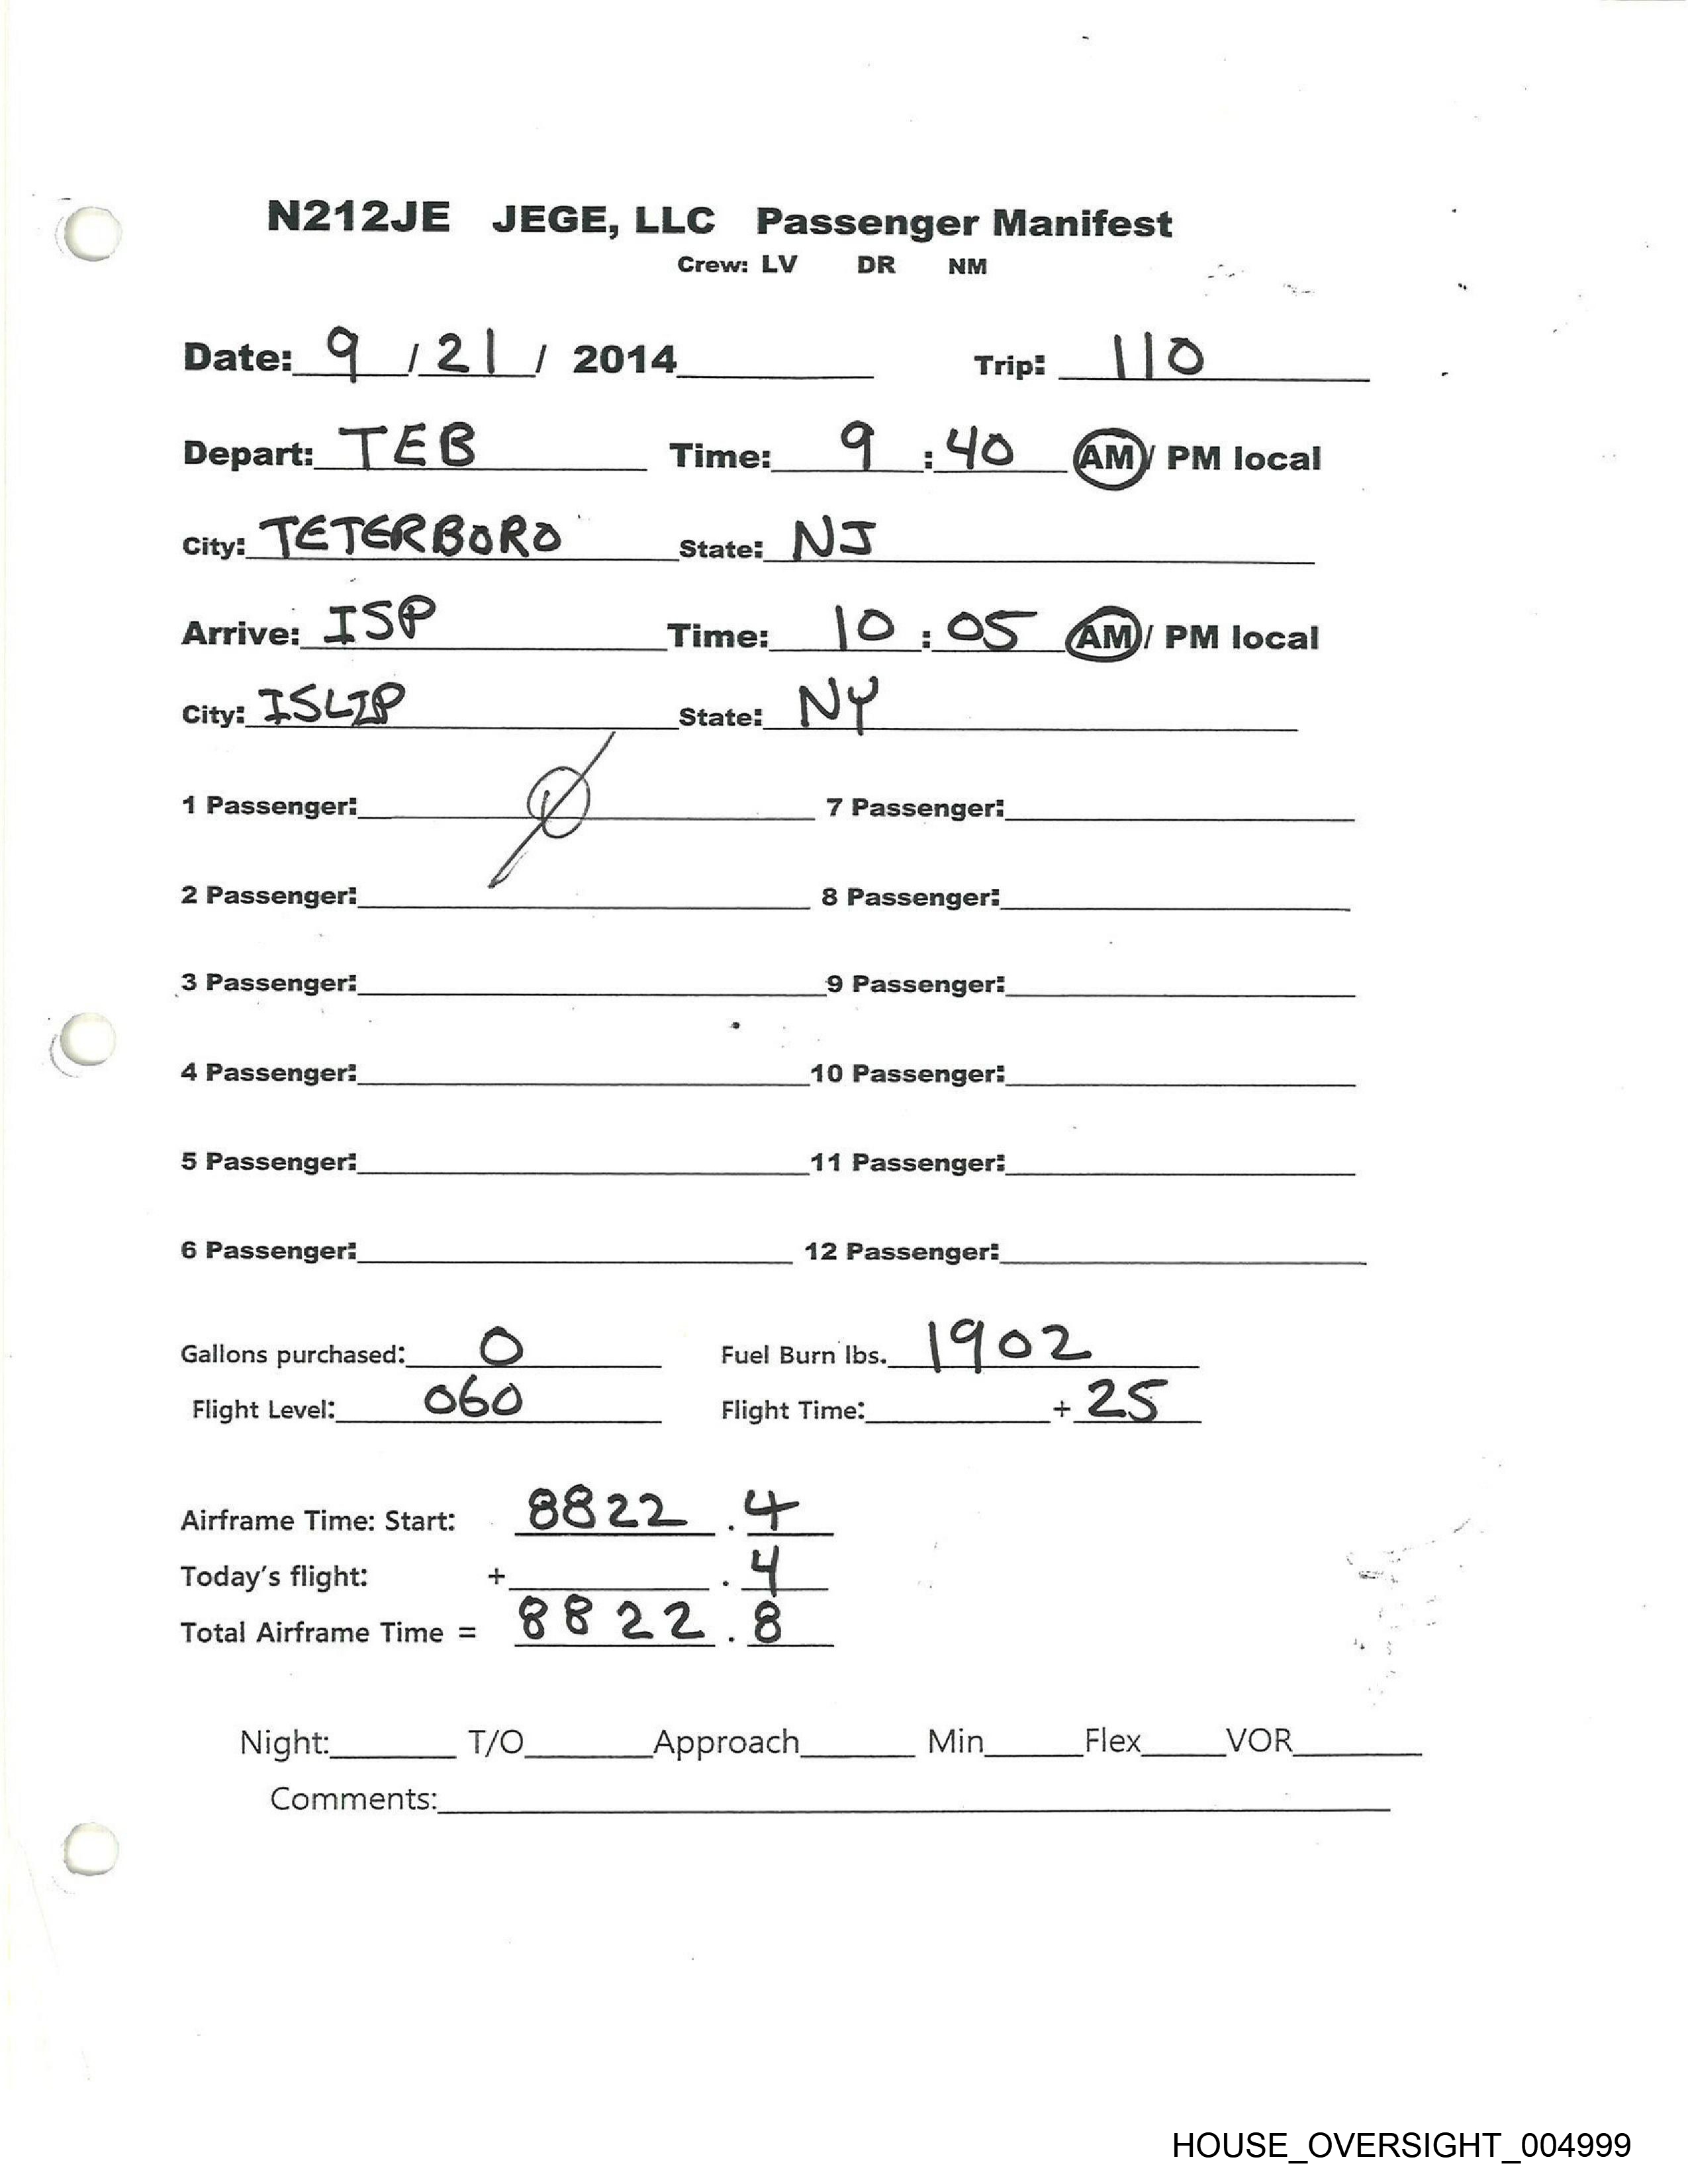 N212JE JEGE, LLC Passenger Manifest
Crew: LV DR NM
Date: 9 / 21 / 2014 Trip: 110
Depart: TEB Time: 9 : 40 AM / PM local
City: TETERBORO State: NJ
Arrive: ISP Time: 10 : 05 AM / PM local
City: ISLIP State: NY
1 Passenger: 7 Passenger:
2 Passenger: 8 Passenger:
3 Passenger: 9 Passenger:
4 Passenger: 10 Passenger:
5 Passenger: 11 Passenger:
6 Passenger: 12 Passenger:
Gallons purchased: 0 Fuel Burn lbs. 1902
Flight Level: 060 Flight Time: + 25
Airframe Time: Start: 8822 . 4
Today's flight: + . 4
Total Airframe Time = 8822 . 8
Night: T/O Approach Min Flex VOR
Comments:
HOUSE_OVERSIGHT_004999